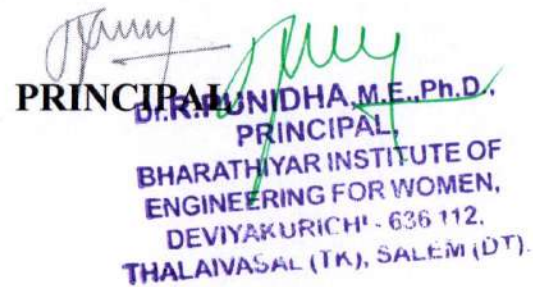 PRINCIPAL
Dr.R.PUNIDHA,M.E.,Ph.D.,
PRINCIPAL,
BHARATHIYAR INSTITUTE OF
ENGINEERING FOR WOMEN,
DEVIYAKURICHI - 636 112.
THALAIVASAL (TK), SALEM (DT).